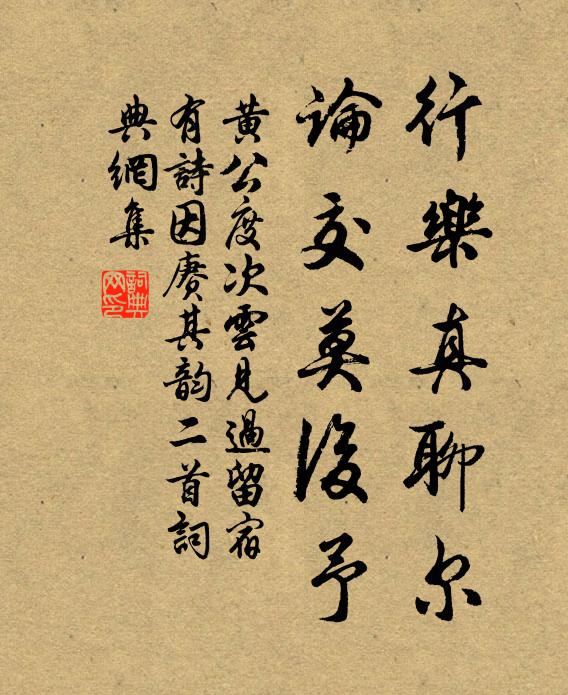 行樂真聊尔
論交莫後予
黄公度次雲見過留宿
有詩因賡其韵二首詞
典網集
詞典网印